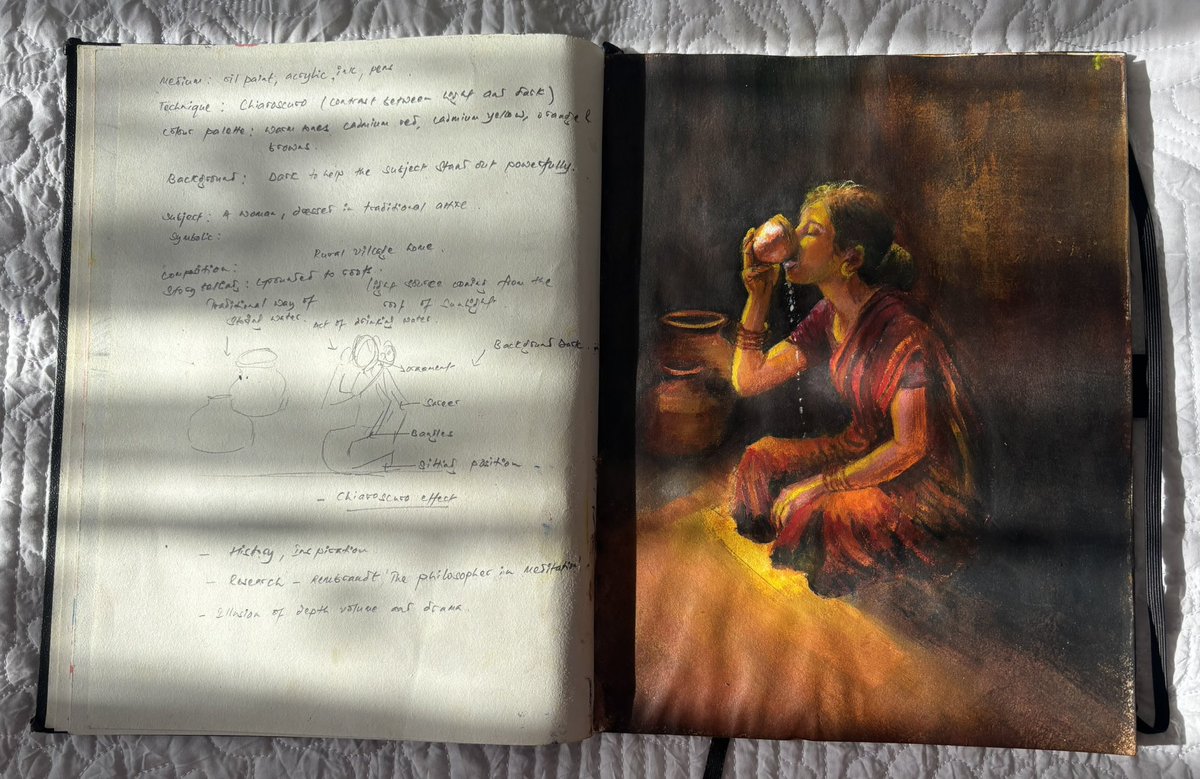 Medium: oil paint, acrylic, ink, pens
Technique: Chiaroscuro (contrast between light and dark)
Colour palette: warm tones cadmium red, cadmium yellow, orange &
browns.
Background: Dark to help the subject stand out powerfully.
Subject: A woman, dresses in traditional attire..
Symbolic:
Rural village home.
Composition:
Story telling: Grounded to roots.
light source coming from the
roof of sunlight
Traditional way of
storing water.
Act of drinking water
Background dark.
ornaments
Saree
Bangles
Sitting position -
- Chiaroscuro effect
- History, inspiration
- Research - Rembrandt 'The philosopher in meditation'
- Illusion of depth volume and drama.